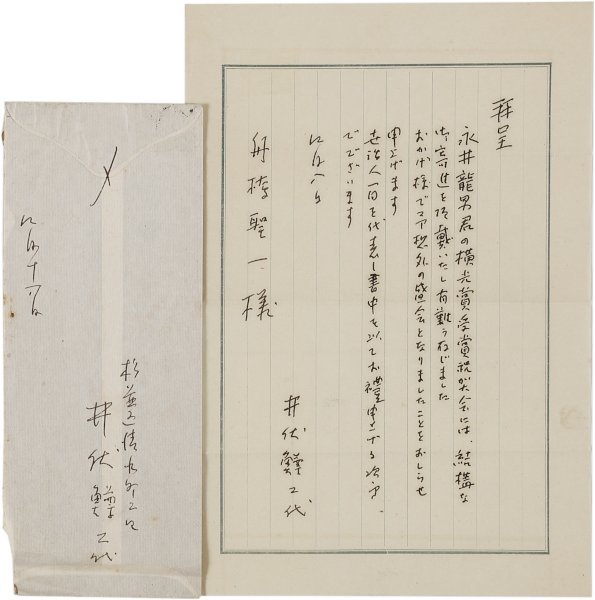 拝呈
永井龍男君の横光賞受賞祝賀大会には、結構な
御寄進を頂戴いたし有難う存じました
おかげ様で予想外の盛会となりましたことをおしらせ
申上げます
世話人一同を代表し書中を以てお禮申上げる次第
でございます
月八日
舟橋聖一様
井伏鱒二代
杉並区清水町
井伏鱒二代